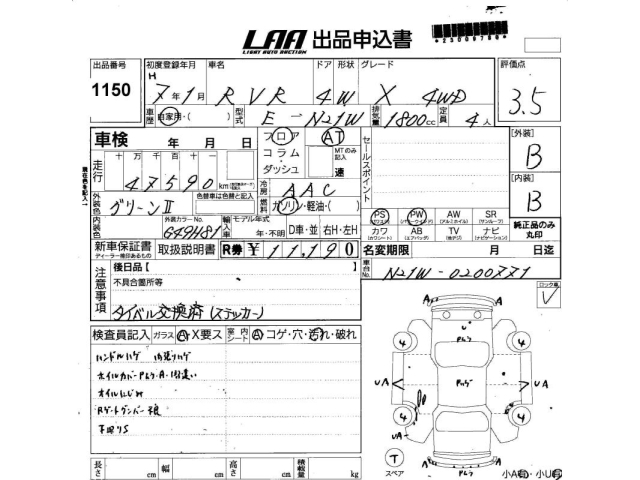 LAA 出品申込書
LIGHT AUTO AUCTION
出品番号 初度登録年月 車名 ドア 形状 グレード 評価点
1150 H 7年1月 RVR 4W X 4WD 3.5
車歴 自家用・( ) 型式 E-N21W 排気量 1800cc 定員 4人
車検 年 月 日 フロア AT セールスポイント [外装]
コラム・ MTのみ記入 B
ダッシュ 速
走行 十万千百十一 [内装]
47590 km 冷房 AAC B
現在色を記入
外装色 グリーンⅡ 色替車は色替と記入 燃料 ガソリン・軽油・( )
PS PW AW SR 純正品のみ丸印
カワ AB TV ナビ
内装色 外装カラーNo. G49H81 輸入車 モデル年式 年・不明 D車・並 右H・左H
新車保証書 取扱説明書 R券 ¥11,190 名変期限 月 日迄
ディーラー捺印あるもの
注意事項 後日品[ ] 車台No. N21W-0200771
不具合箇所等 ロック車
タイベル交換済(ステッカー)
検査員記入 ガラス A・X要ス 室内シート A コゲ・穴・汚れ・破れ
ハンドルハゲ
オイルにじみ
長さ cm 幅 cm 高さ cm 積載量 kg
A A
4 4
UA UA
4 4
UA
T
スペア
A A
小A 小U